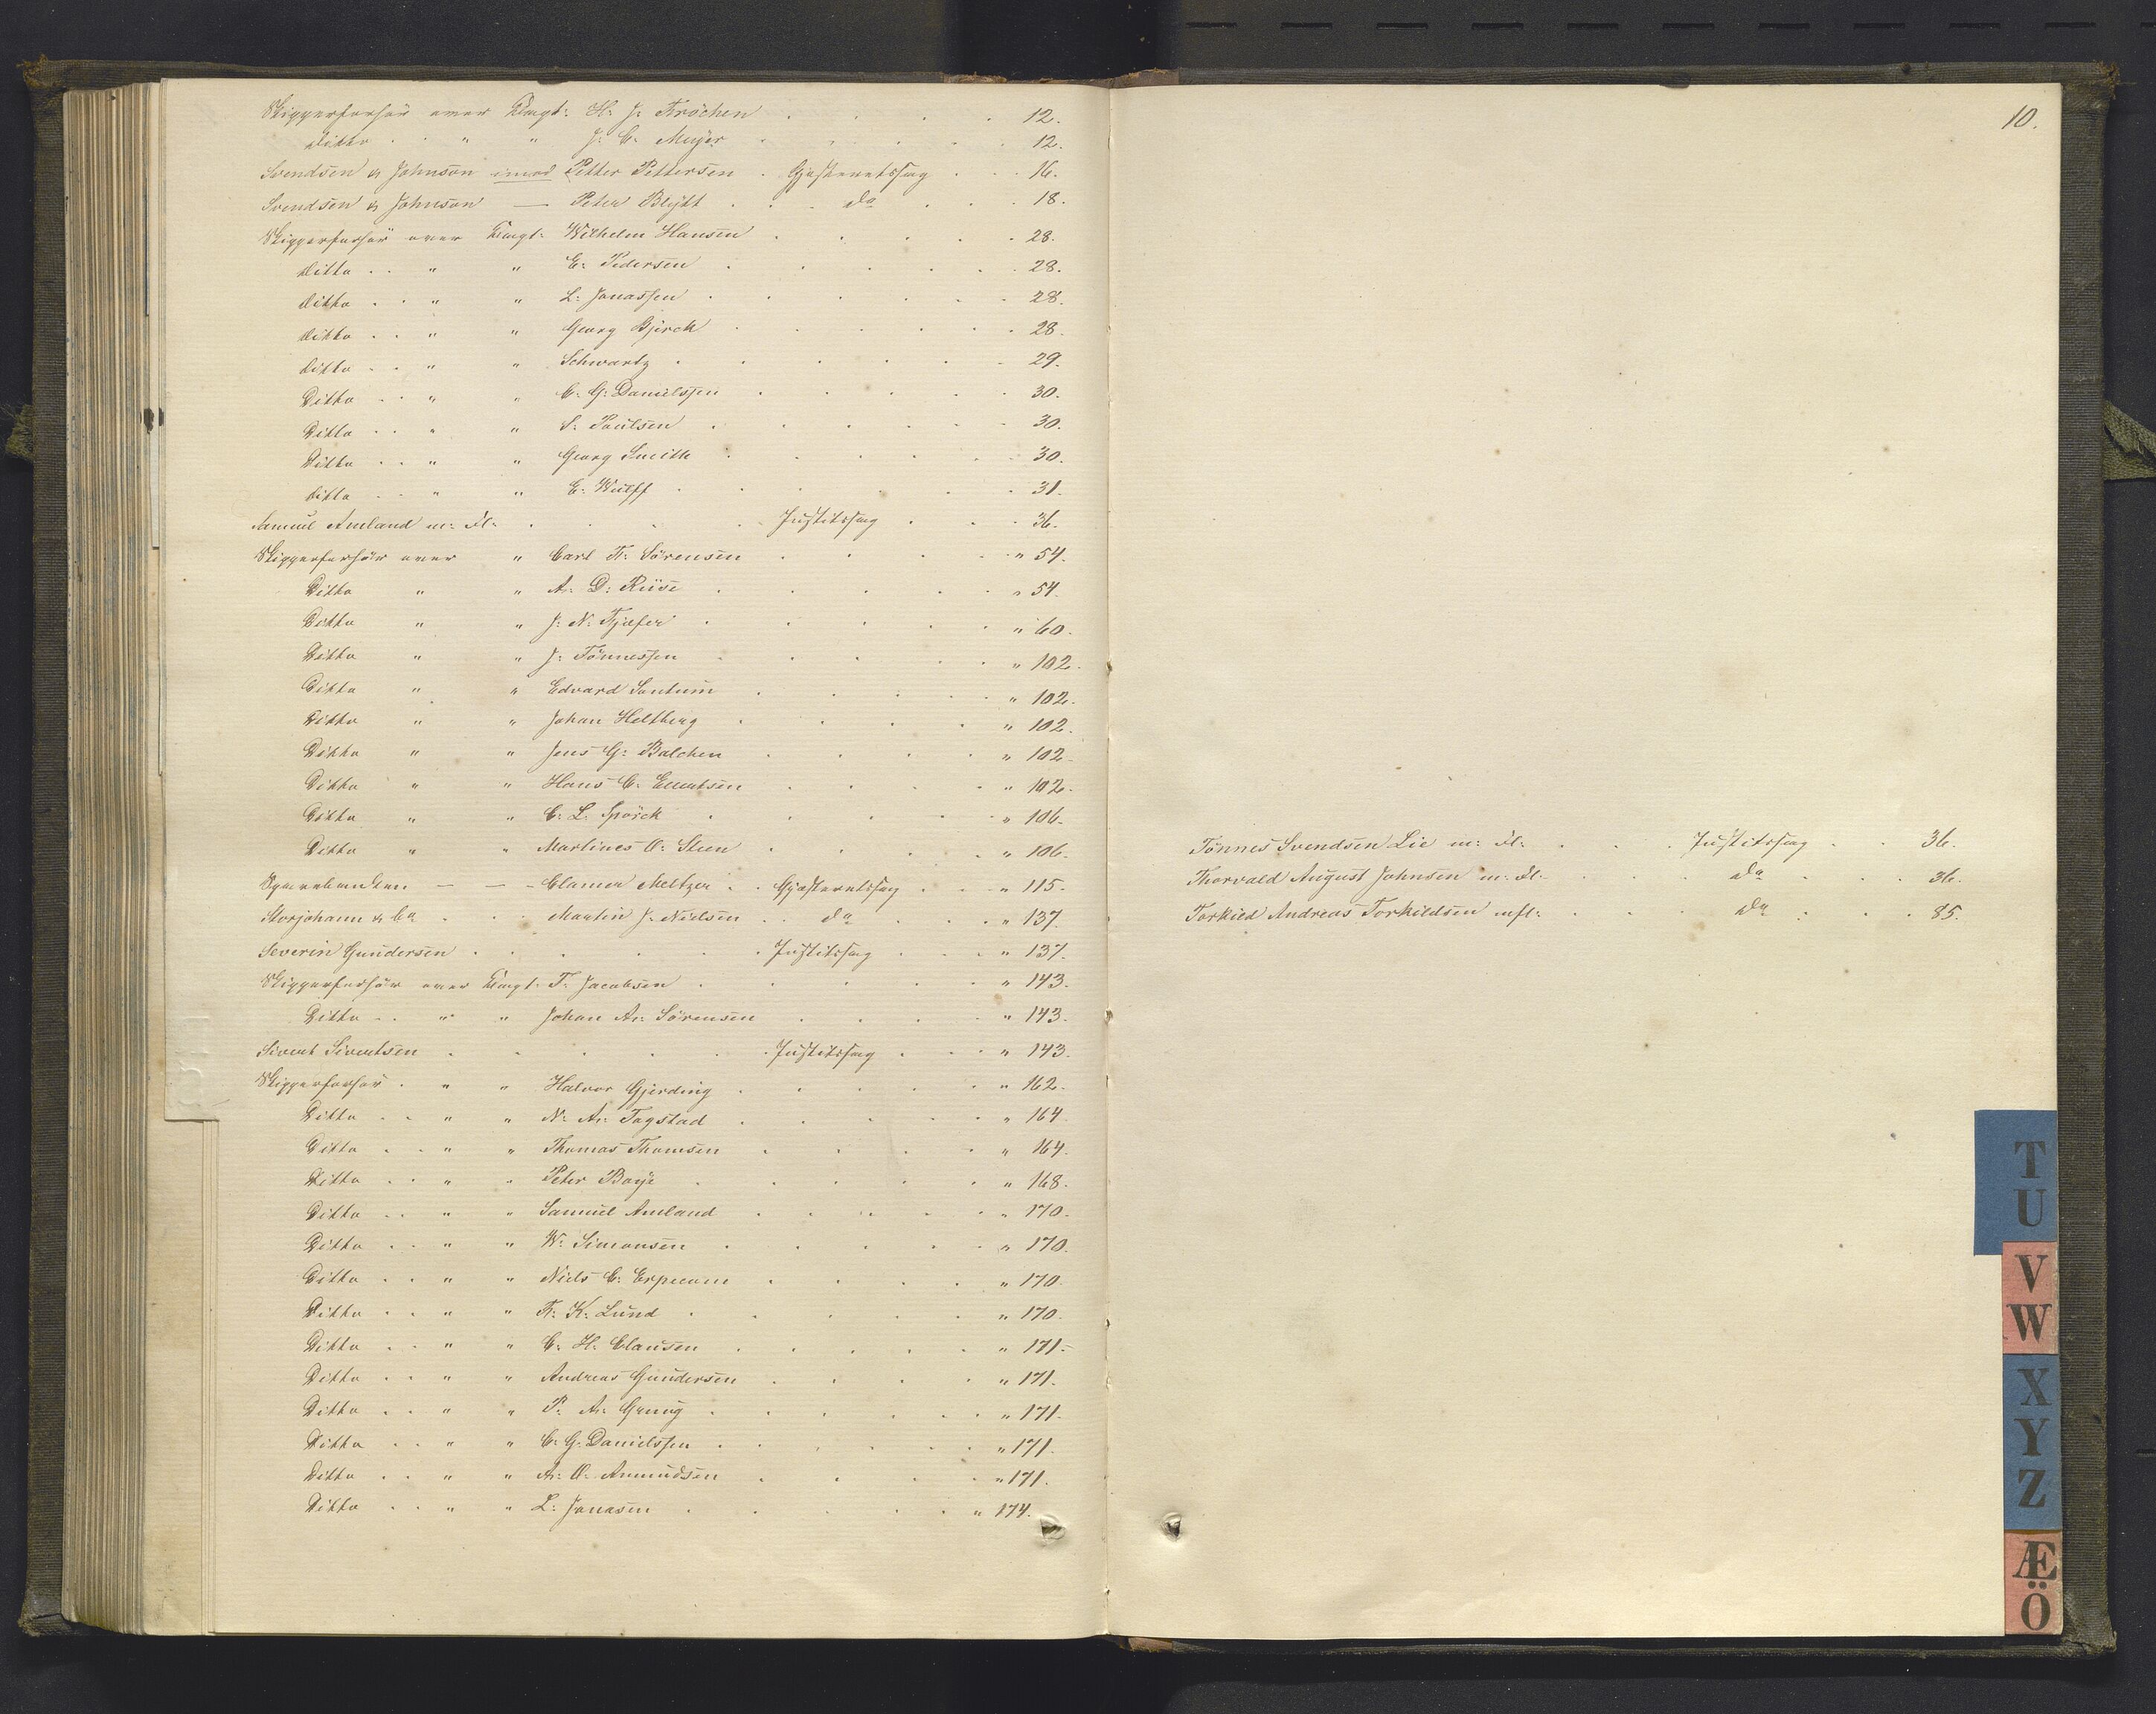 Skipperforhør over Capt: H. J. Fröchen . . . . 12.
ditto . . " " J. C. Meyer . . . . 12.
Svendsen & Johnson imod Petter Pettersen . Gjesteretssag . . . 16.
Svendsen & Johnson — Peter Blÿtt . . . do . . . 18.
Skipperforhør over Capt: Wilhelm Hansen . . . . 28.
ditto . . " " E. Pedersen . . . . 28.
ditto . . " " L: Jonassen . . . . 28.
ditto . . " " Georg Bjerck . . . . 28.
ditto . . " " Schwartz . . . . 29.
Ditto . . " " C. G. Danielssen . . . . 30.
Ditto . . " " S. Poulsen . . . . 30.
Ditto . . " " Georg Smith . . . . 30.
ditto . . " " E. Wulff . . . . 31.
Samuel Amland m: Fl: . . . . Justitssag . . . 36.
Skipperforhør over " Carl Fr. Sörensen . . . . " 54.
Ditto " " A. D: Riise . . . . " 54.
Ditto " " J. N. . . . . " 60.
Ditto " " J: Tönnessen . . . . " 102.
Ditto " " Edvard Sontum . . . . " 102.
Ditto " " Johan Heltberg . . . . " 102.
Ditto " " Jens G. Balchen . . . . " 102.
Ditto " " Hans C. . . . . " 102.
Ditto " " C. L. Spörck . . . . " 106.
Ditto " " Martines O. Steen . . . . " 106.
Sparebanken — — Clamer Meltzer . . Gjesteretssag . . . " 115.
Storjohann & Co . . . Martin J. Nielsen . . do . . . " 137.
Severin Gundersen . . . . Justitssag . . . " 137.
Skipperforhør over Capt. F. Jacobsen . . . . " 143.
Ditto . . " " Johan A. Sörensen . . . . " 143.
Sivert Sivertsen . . . . Justitssag . . . " 143.
Skipperforhør . " " Halvor Gjerding . . . . " 162.
Ditto . . " " N. A. Fagstad . . . . " 164.
Ditto . . " " Thomas Thomsen . . . . " 164.
Ditto . . " " Peter Boye . . . . " 168.
Ditto . . " " Samuel Amland . . . . " 170.
Ditto . . " " W. Simonsen . . . . " 170.
Ditto . . " " Niels C. . . . . " 170.
Ditto . . " " Fr. K. Lund . . . . " 170.
Ditto . . " " C. H. Clausen . . . . " 171.
Ditto . . " " Andreas Gundersen . . . . " 171.
Ditto . . " " P. A. . . . . " 171.
Ditto . . " " C. G. Danielssen . . . . " 171.
Ditto . . " " A. O. Amundsen . . . . " 171.
Ditto . . " " L: Jonasen . . . . " 174.
10.
Tönnes Svendsen Lie m: Fl: . . . Justitssag . . 36.
Thorvald August Johnsen m: Fl: . . . do . . . 36.
Torkild Andreas Torkildsen mfl: . . . do . . . 85.
T
U
V
W
X
Y
Z
Æ
Ö